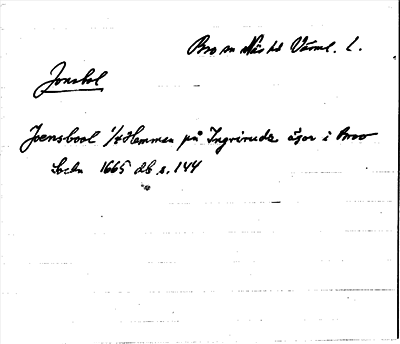 Bro sn Näs hd Värml. l.
Jonsbol
Joensbool 1/4 Hemman på Ingrirudz ägor i Broo
Sockn 1665 db s. 144